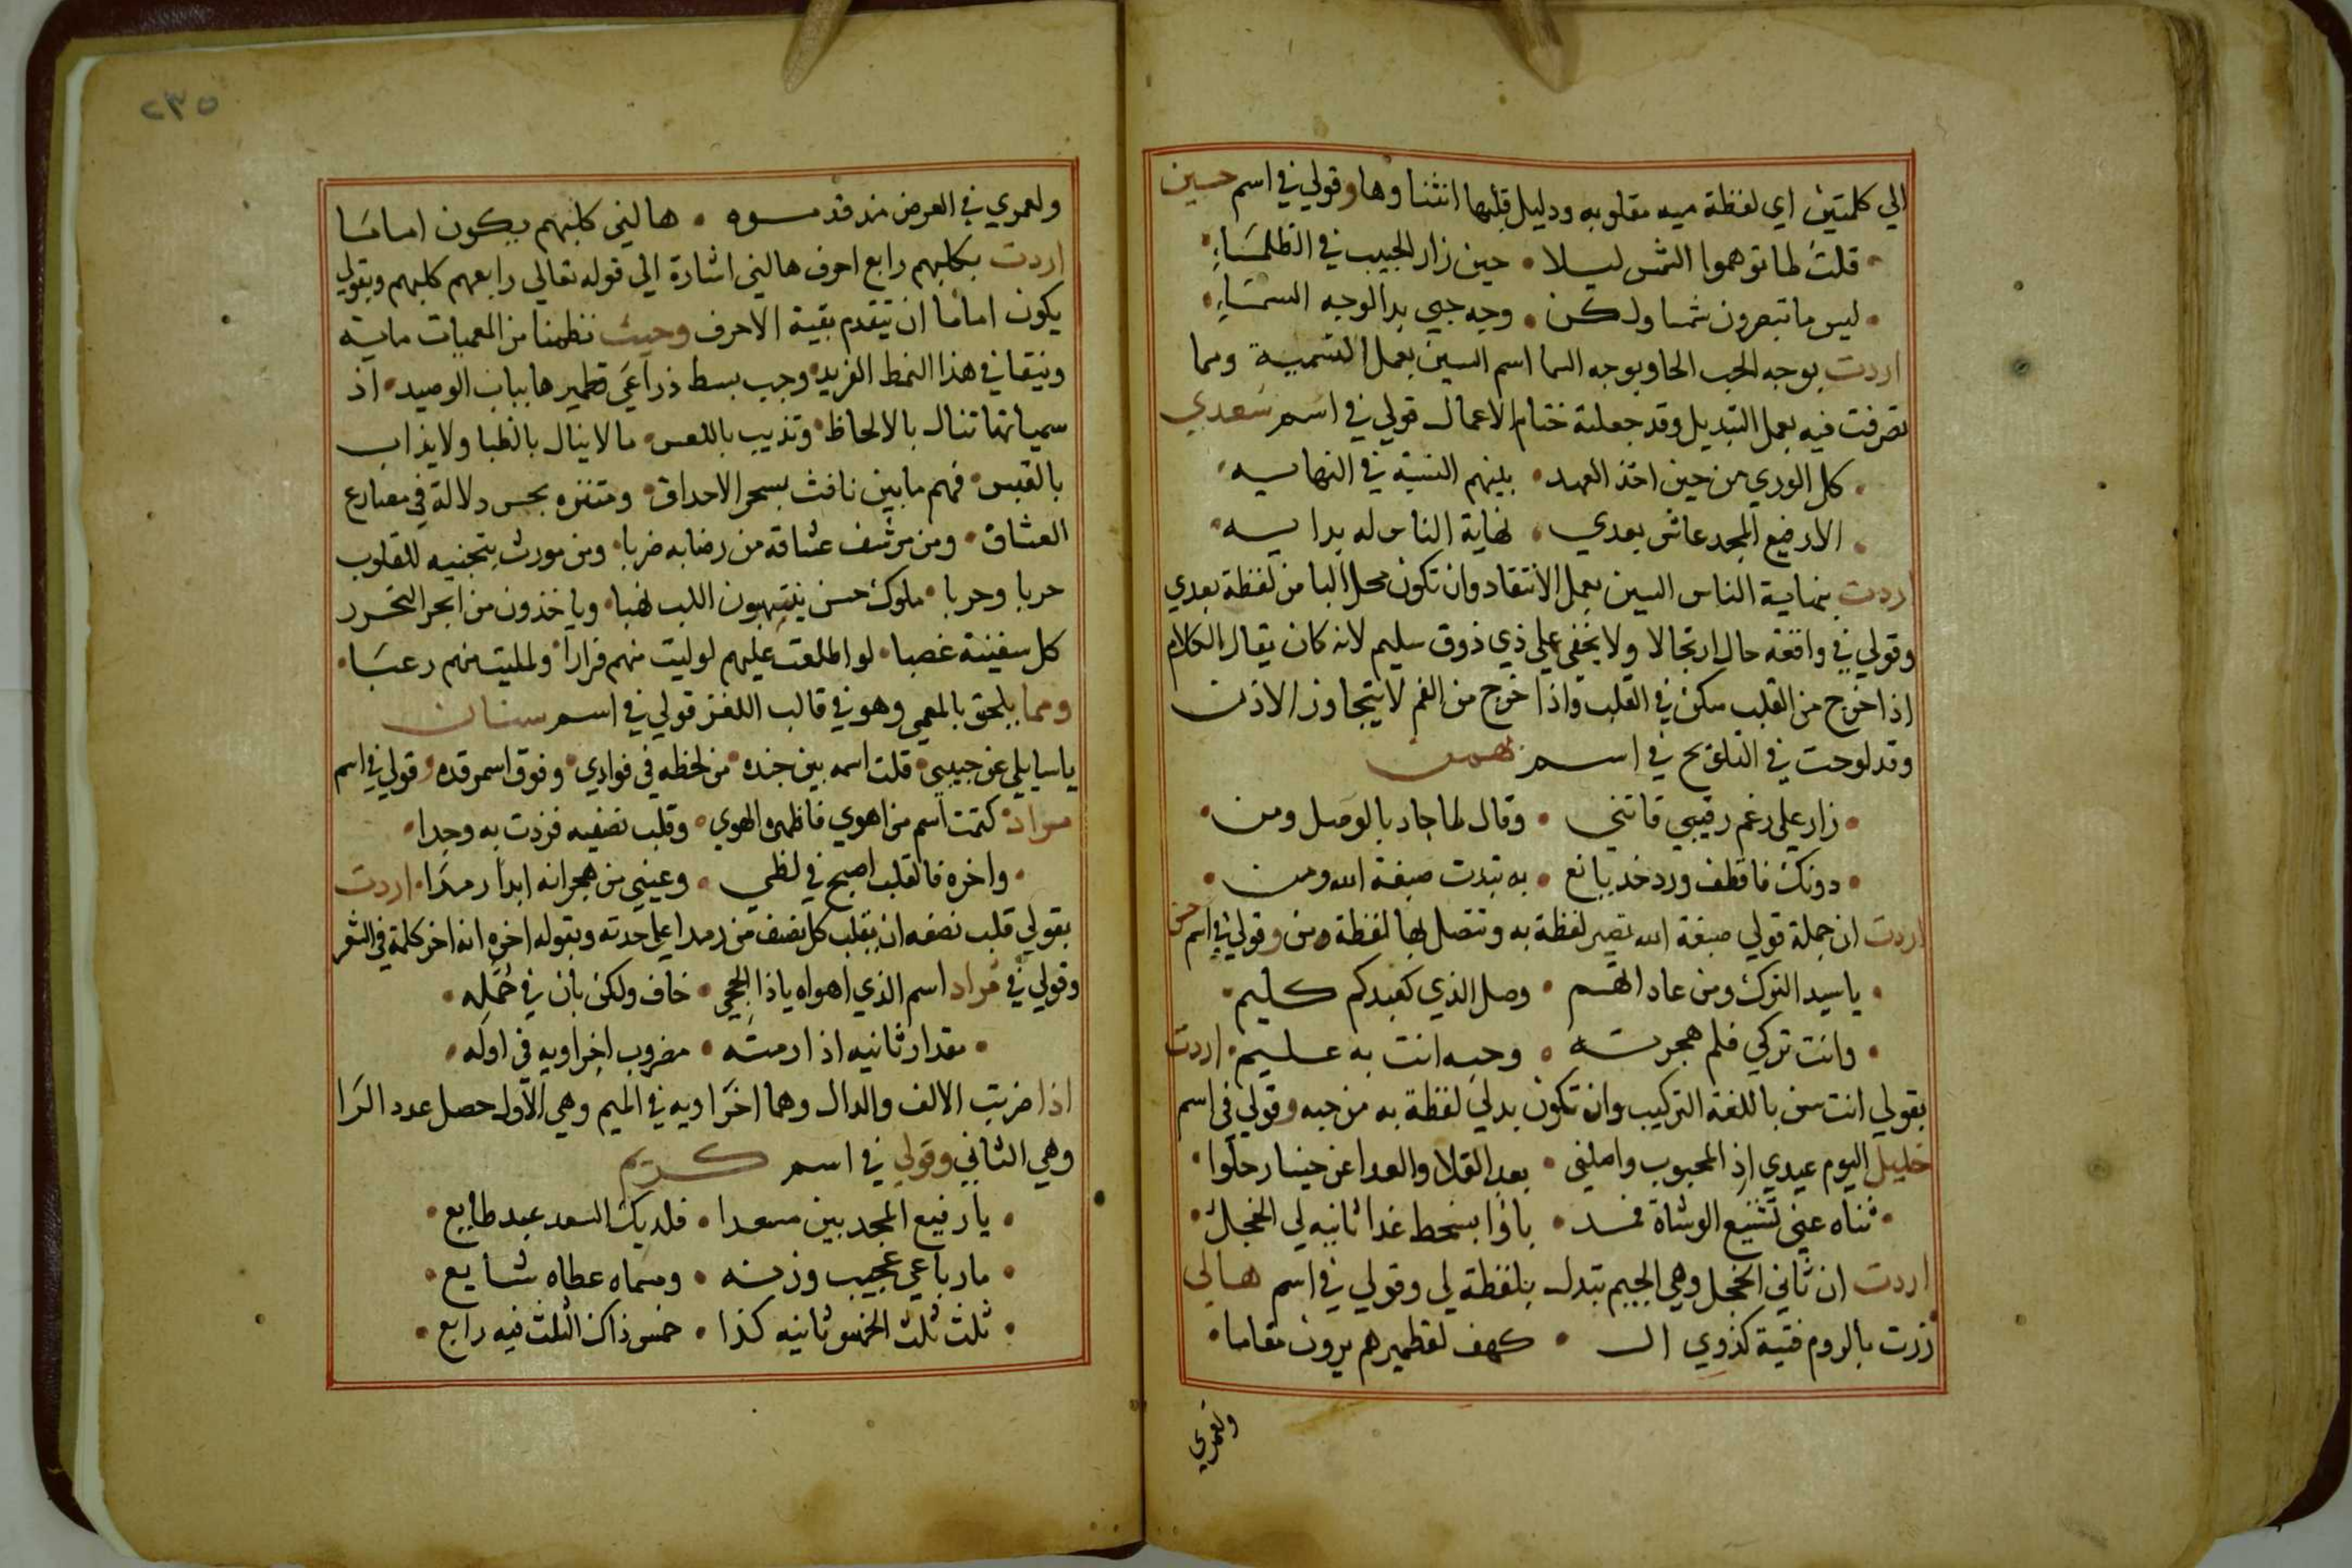 الي كلمتين اي لفظة ميه مقلوبه ودليل قلبها انثنا وها وقولي في اسم حسين
قلت لما توهموا الشمس ليلا • حين زار الحبيب في الظلماء
ليس ما تبصرون شمسا ولكن • وجه حبي بدا لوجه السماء
اردت بوجه الحب الحا وبوجه السما اسم السين بعمل التسمية ومما
تصرفت فيه بعمل التبديل وقد جعلته ختام الاعمال قولي في اسم سعدي
كل الوري من حين اخذ العهد • بينهم النسبة في النهايه
الا رفيع المجد عاش بعدي • نهاية الناس له بدايه
اردت بنهاية الناس السين بعمل الانتقاد وان تكون محل البا من لفظة بعدي
وقولي في واقعة حال ارتجالا ولا يخفي علي ذي ذوق سليم لانه كان يقال الكلام
اذا خرج من القلب سكن في القلب واذا خرج من الفم لا يتجاوز الاذن
وقد لوحت في التلويح في اسم بهمن
زار علي رغم رقيبي فاتني • وقال لما جاد بالوصل ومن
دونك فاقطف ورد خد يانع • به تبدت صبغة الله ومن
اردت ان جملة قولي صبغة الله تصير لفظة به وتتصل بها لفظة من وقولي في اسم حسن
يا سيد الترك ومن عاداتهم • وصل الذي كعبدكم كليم
وانت تركي فلم هجرته • وحبه انت به عليم اردت
بقولي انت سن باللغة التركيب وان تكون بدلي لفظة به من حبه وقولي في اسم
خليل اليوم عيدي اذ المحبوب واصلني • بعد القلا والعدا عن حينا رحلوا
ثناه عني تشنيع الوشاة فمذ • باؤا بسخط غدا ثانيه لي الخجل
اردت ان ثاني الخجل وهي الجيم تبدل بلفظة لي وقولي في اسم هالي
زرت بالروم فتية كذوي ال • كهف لقطميرهم يرون مقاما
ولعمري
٢٣٥
ولعمري في العرض مذ قدموه • هالني كلبهم يكون اماما
اردت بكلبهم رابع احرف هالني اشارة الي قوله تعالي رابعهم كلبهم وبقولي
يكون اماما ان يتقدم بقية الاحرف وحيث نظمنا من المعميات ماية
ونيفا في هذا النمط الفريد وجب بسط ذراعي قطميرها بباب الوصيد اذ
سمياتها تنال بالالحاظ وتذيب باللعس ما لا ينال بالظبا ولا يذاب
بالقبس فهم ما بين نافث بسحر الاحداق ومتنزه بحسن دلاله في مصارع
العشاق ومن مرشف عشاقه من رضابه ضربا ومن مورث بتجنيه للقلوب
حربا وحربا ملوك حسن ينتهبون اللب نهبا وياخذون من ابحر
كل سفينة غصبا لو اطلعت عليهم لوليت منهم فرارا ولمليت منهم رعبا
ومما يلحق بالمعمي وهو في قالب اللغز قولي في اسم سنان
يا سايلي عن حبيبي • قلت اسمه بين جنده • من لحظه في فوادي • وفوق اسمر قده وقولي في اسم
مراد كتمت اسم من اهوي فاظهره الهوي • وقلب نصفيه فزدت به وجدا
واخره فالقلب اصبح في لظي • وعيني من هجرانه ابدا رمدا اردت
بقولي قلب نصفه ان يقلب كل نصف من رمدا علي حدته وبقوله اخره انه اخر كلمة في الشعر
وقولي في مراد اسم الذي اهواه يا ذا الحجي • خاف ولكن بان في جمله
مقدار ثانيه اذا رمته • مضروب اخراويه في اوله
اذا ضربت الالف والدال وهما اخراويه في الميم وهي الاول حصل عدد الرا
وهي الثاني وقولي في اسم كريم
يا رفيع المجد بين مسعدا • فلديك السعد عبد طايع
ما رباعي عجيب وزنه • ومسماه عطاه شايع
ثلث ثلث الخمس ثانيه كذا • خمس ذاك الثلث فيه رابع